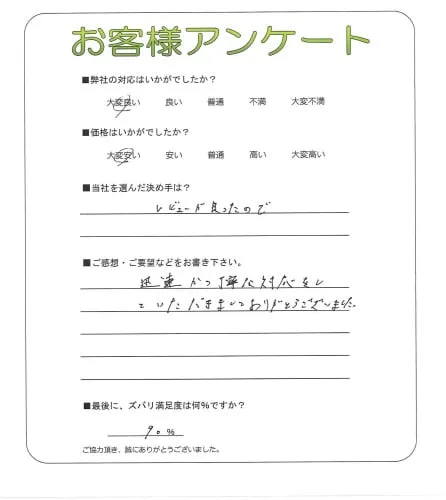 お客様アンケート
■弊社の対応はいかがでしたか?
大変良い 良い 普通 不満 大変不満
■価格はいかがでしたか?
大変安い 安い 普通 高い 大変高い
■当社を選んだ決め手は?
レビューが良ったので
■ご感想・ご要望などをお書き下さい。
迅速かつ丁寧な対応をし
ていただきましてありがとうございました。
■最後に、ズバリ満足度は何%ですか?
90%
ご協力頂き、誠にありがとうございました。